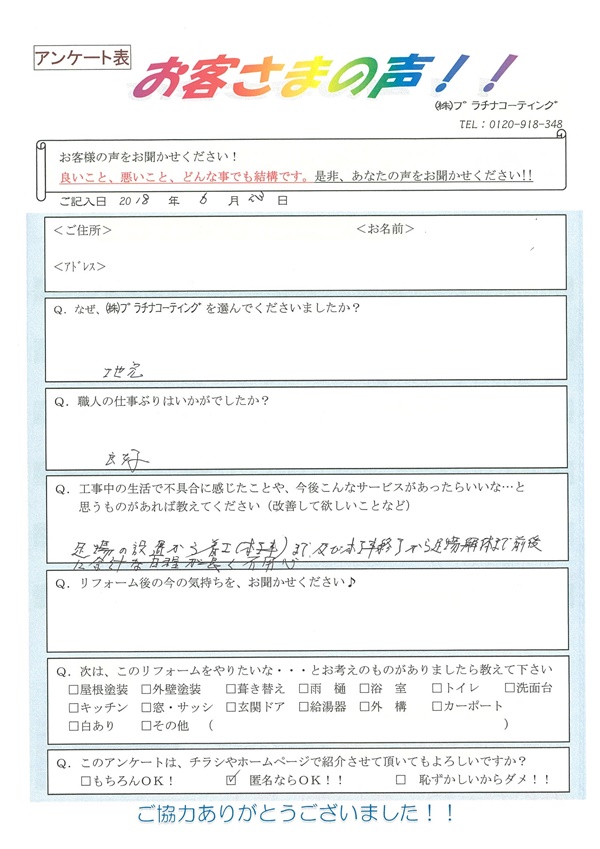 アンケート表
お客さまの声！！
㈱ﾌﾟﾗﾁﾅｺｰﾃｨﾝｸﾞ
TEL：0120-918-348
お客様の声をお聞かせください！
良いこと、悪いこと、どんな事でも結構です。是非、あなたの声をお聞かせください!!
ご記入日 2018 年 6 月 28 日
＜ご住所＞ ＜お名前＞
＜ｱﾄﾞﾚｽ＞
Q．なぜ、㈱ﾌﾟﾗﾁﾅｺｰﾃｨﾝｸﾞを選んでくださいましたか？
地元
Q．職人の仕事ぶりはいかがでしたか？
良好
Q．工事中の生活で不具合に感じたことや、今後こんなサービスがあったらいいな…と
思うものがあれば教えてください（改善して欲しいことなど）
足場の設置から着工(本工事)まで及び本工事終了から足場解体まで前後
な日程が長く不用心
Q．リフォーム後の今の気持ちを、お聞かせください♪
Q．次は、このリフォームをやりたいな・・・とお考えのものがありましたら教えて下さい
□屋根塗装 □外壁塗装 □葺き替え □雨 樋 □浴 室 □トイレ □洗面台
□キッチン □窓・サッシ □玄関ドア □給湯器 □外 構 □カーポート
□白あり □その他 （ ）
Q．このアンケートは、チラシやホームページで紹介させて頂いてもよろしいですか？
□もちろんOK！ ☑ 匿名ならOK！！ □ 恥ずかしいからダメ！！
ご協力ありがとうございました！！